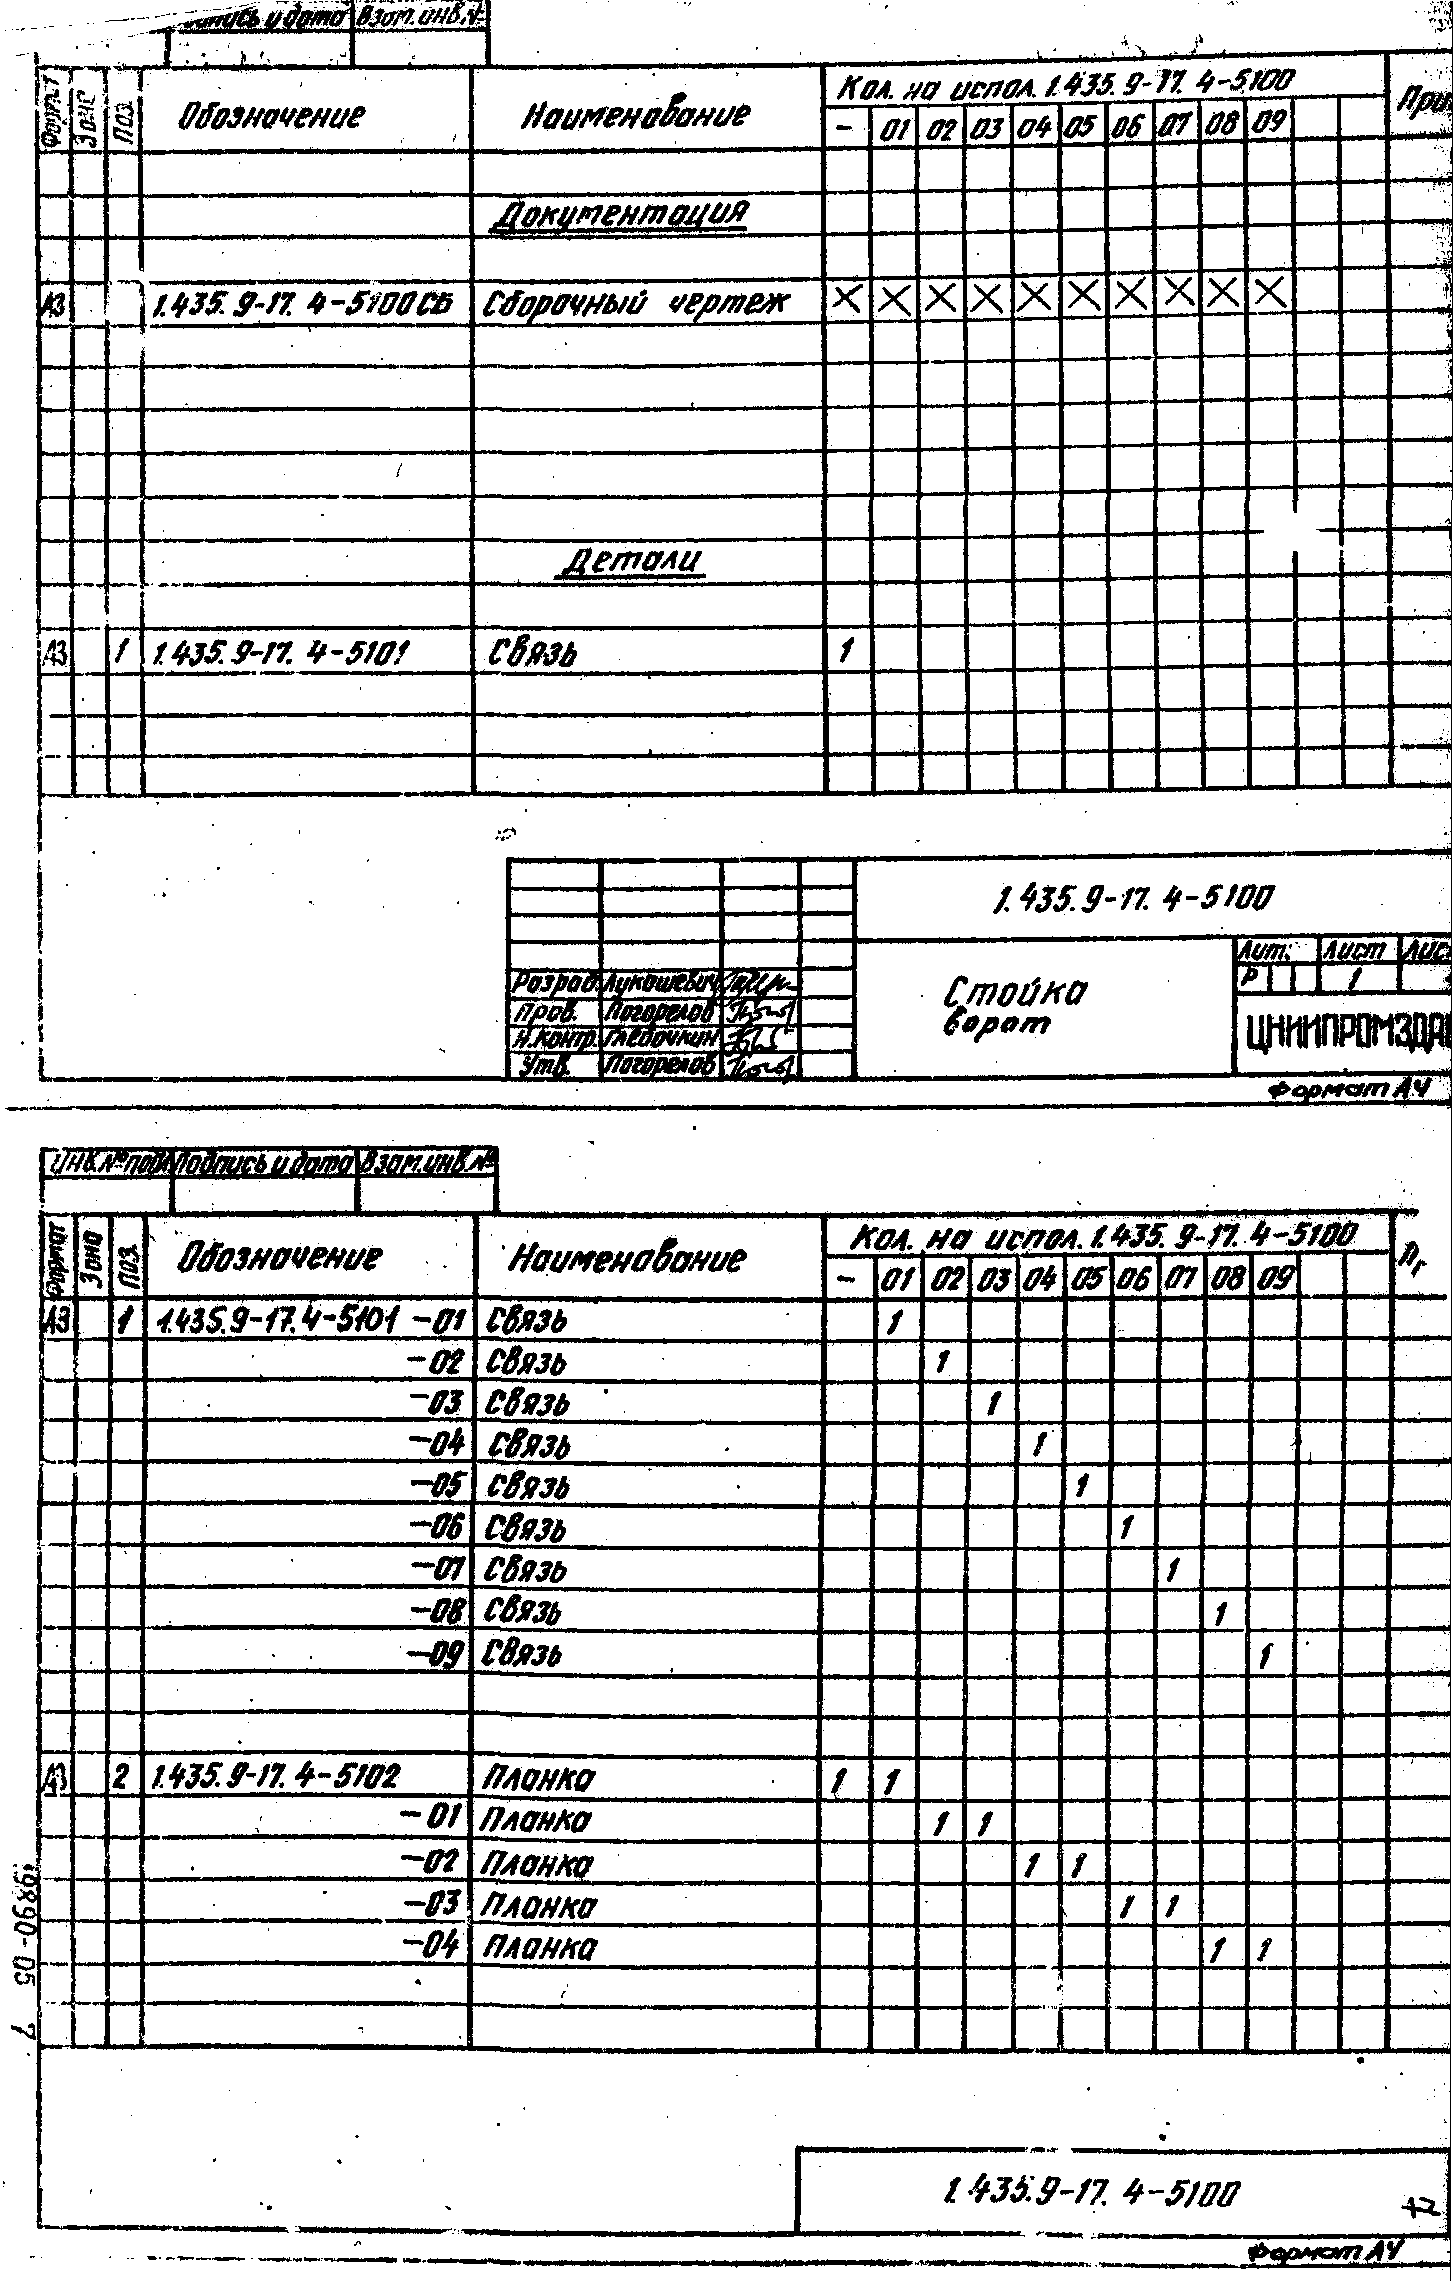 и дата Взам. инв. №
Формат Зона Поз. Обозначение Наименование Кол. на испол. 1.435.9-17.4-5100
- 01 02 03 04 05 06 07 08 09
Документация
А3 1.435.9-17.4-5100СБ Сборочный чертеж X X X X X X X X X X
Детали
А3 1 1.435.9-17.4-5101 Связь 1
1.435.9-17.4-5100
Стойка
ворот
Лит. Лист
Р 1
Разраб. Лукашевич
Пров. Погорелов
Н.контр.
Утв. Погорелов
Формат А4
Инв.№ подл Подпись и дата Взам. инв.№
Формат Зона Поз. Обозначение Наименование Кол. на испол. 1.435.9-17.4-5100
- 01 02 03 04 05 06 07 08 09
А3 1 1.435.9-17.4-5101 -01 Связь 1
-02 Связь 1
-03 Связь 1
-04 Связь 1
-05 Связь 1
-06 Связь 1
-07 Связь 1
-08 Связь 1
-09 Связь 1
А3 2 1.435.9-17.4-5102 Планка 1 1
-01 Планка 1 1
-02 Планка 1 1
-03 Планка 1 1
-04 Планка 1 1
19890-05 7
1.435.9-17.4-5100
Формат А4